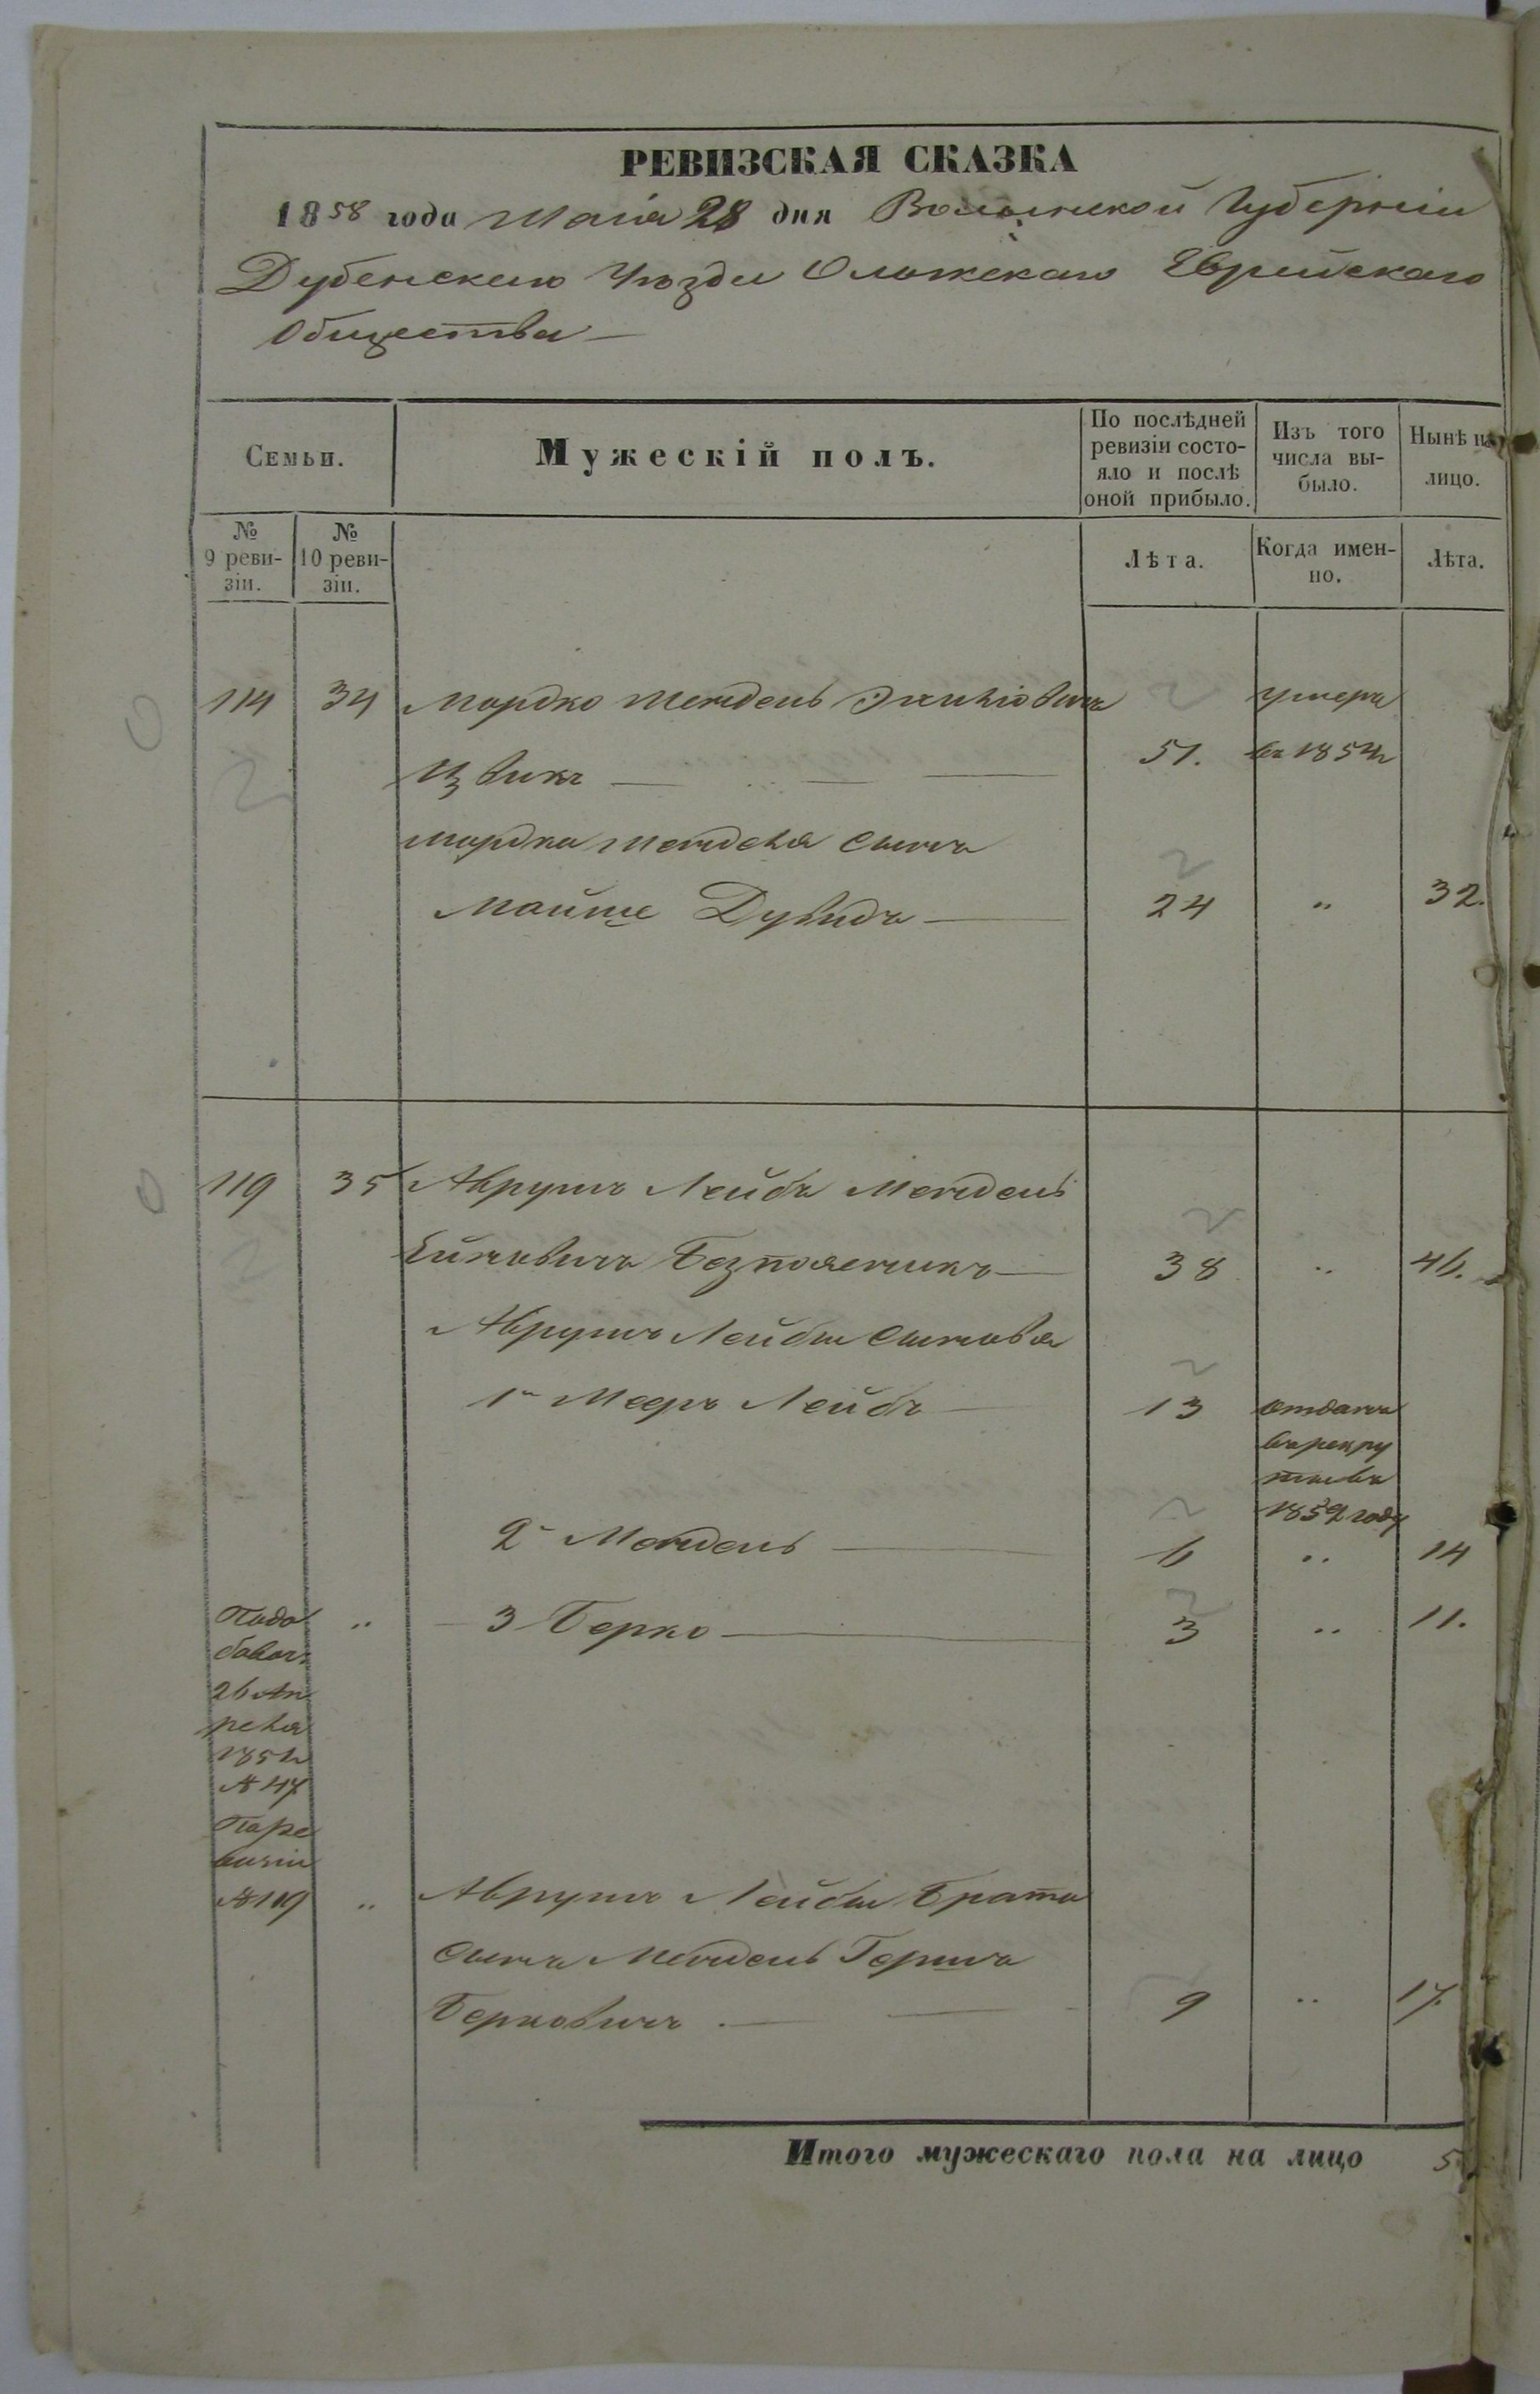 РЕВИЗСКАЯ СКАЗКА
1858 года Маія 28 дня Волынской Губерніи
Дубенскаго Уѣзда Еврейскаго
Общества
Семьи.
Мужескій полъ.
По послѣдней ревизіи состо-
яло и послѣ оной прибыло.
Изъ того числа вы-
было.
Нынѣ на лицо.
№ 9 реви-
зіи.
№ 10 реви-
зіи.
Лѣта.
Когда имен-
но.
Лѣта.
114 34 Мордко Мендель умеръ
Цвикъ 51. въ 1854г
Мордка Менделя сынъ
Майше Дувидъ 24 " 32.
119 35 Аврумъ Лейбъ Мендель
38 " 46.
Аврумъ Лейбы сыновья
1й Мееръ Лейбъ 13 отданъ
въ рекру
ты въ
году
2й Мендель 6 " 14
По до " 3 Берко 3 " 11.
бавоч.
26 Ап
реля
№ 47
По ре
визіи
№ 119 " Аврумъ Лейбы брата
сынъ Мендель Гершъ
Берковичъ 9 " 17.
Итого мужескаго пола на лицо 5